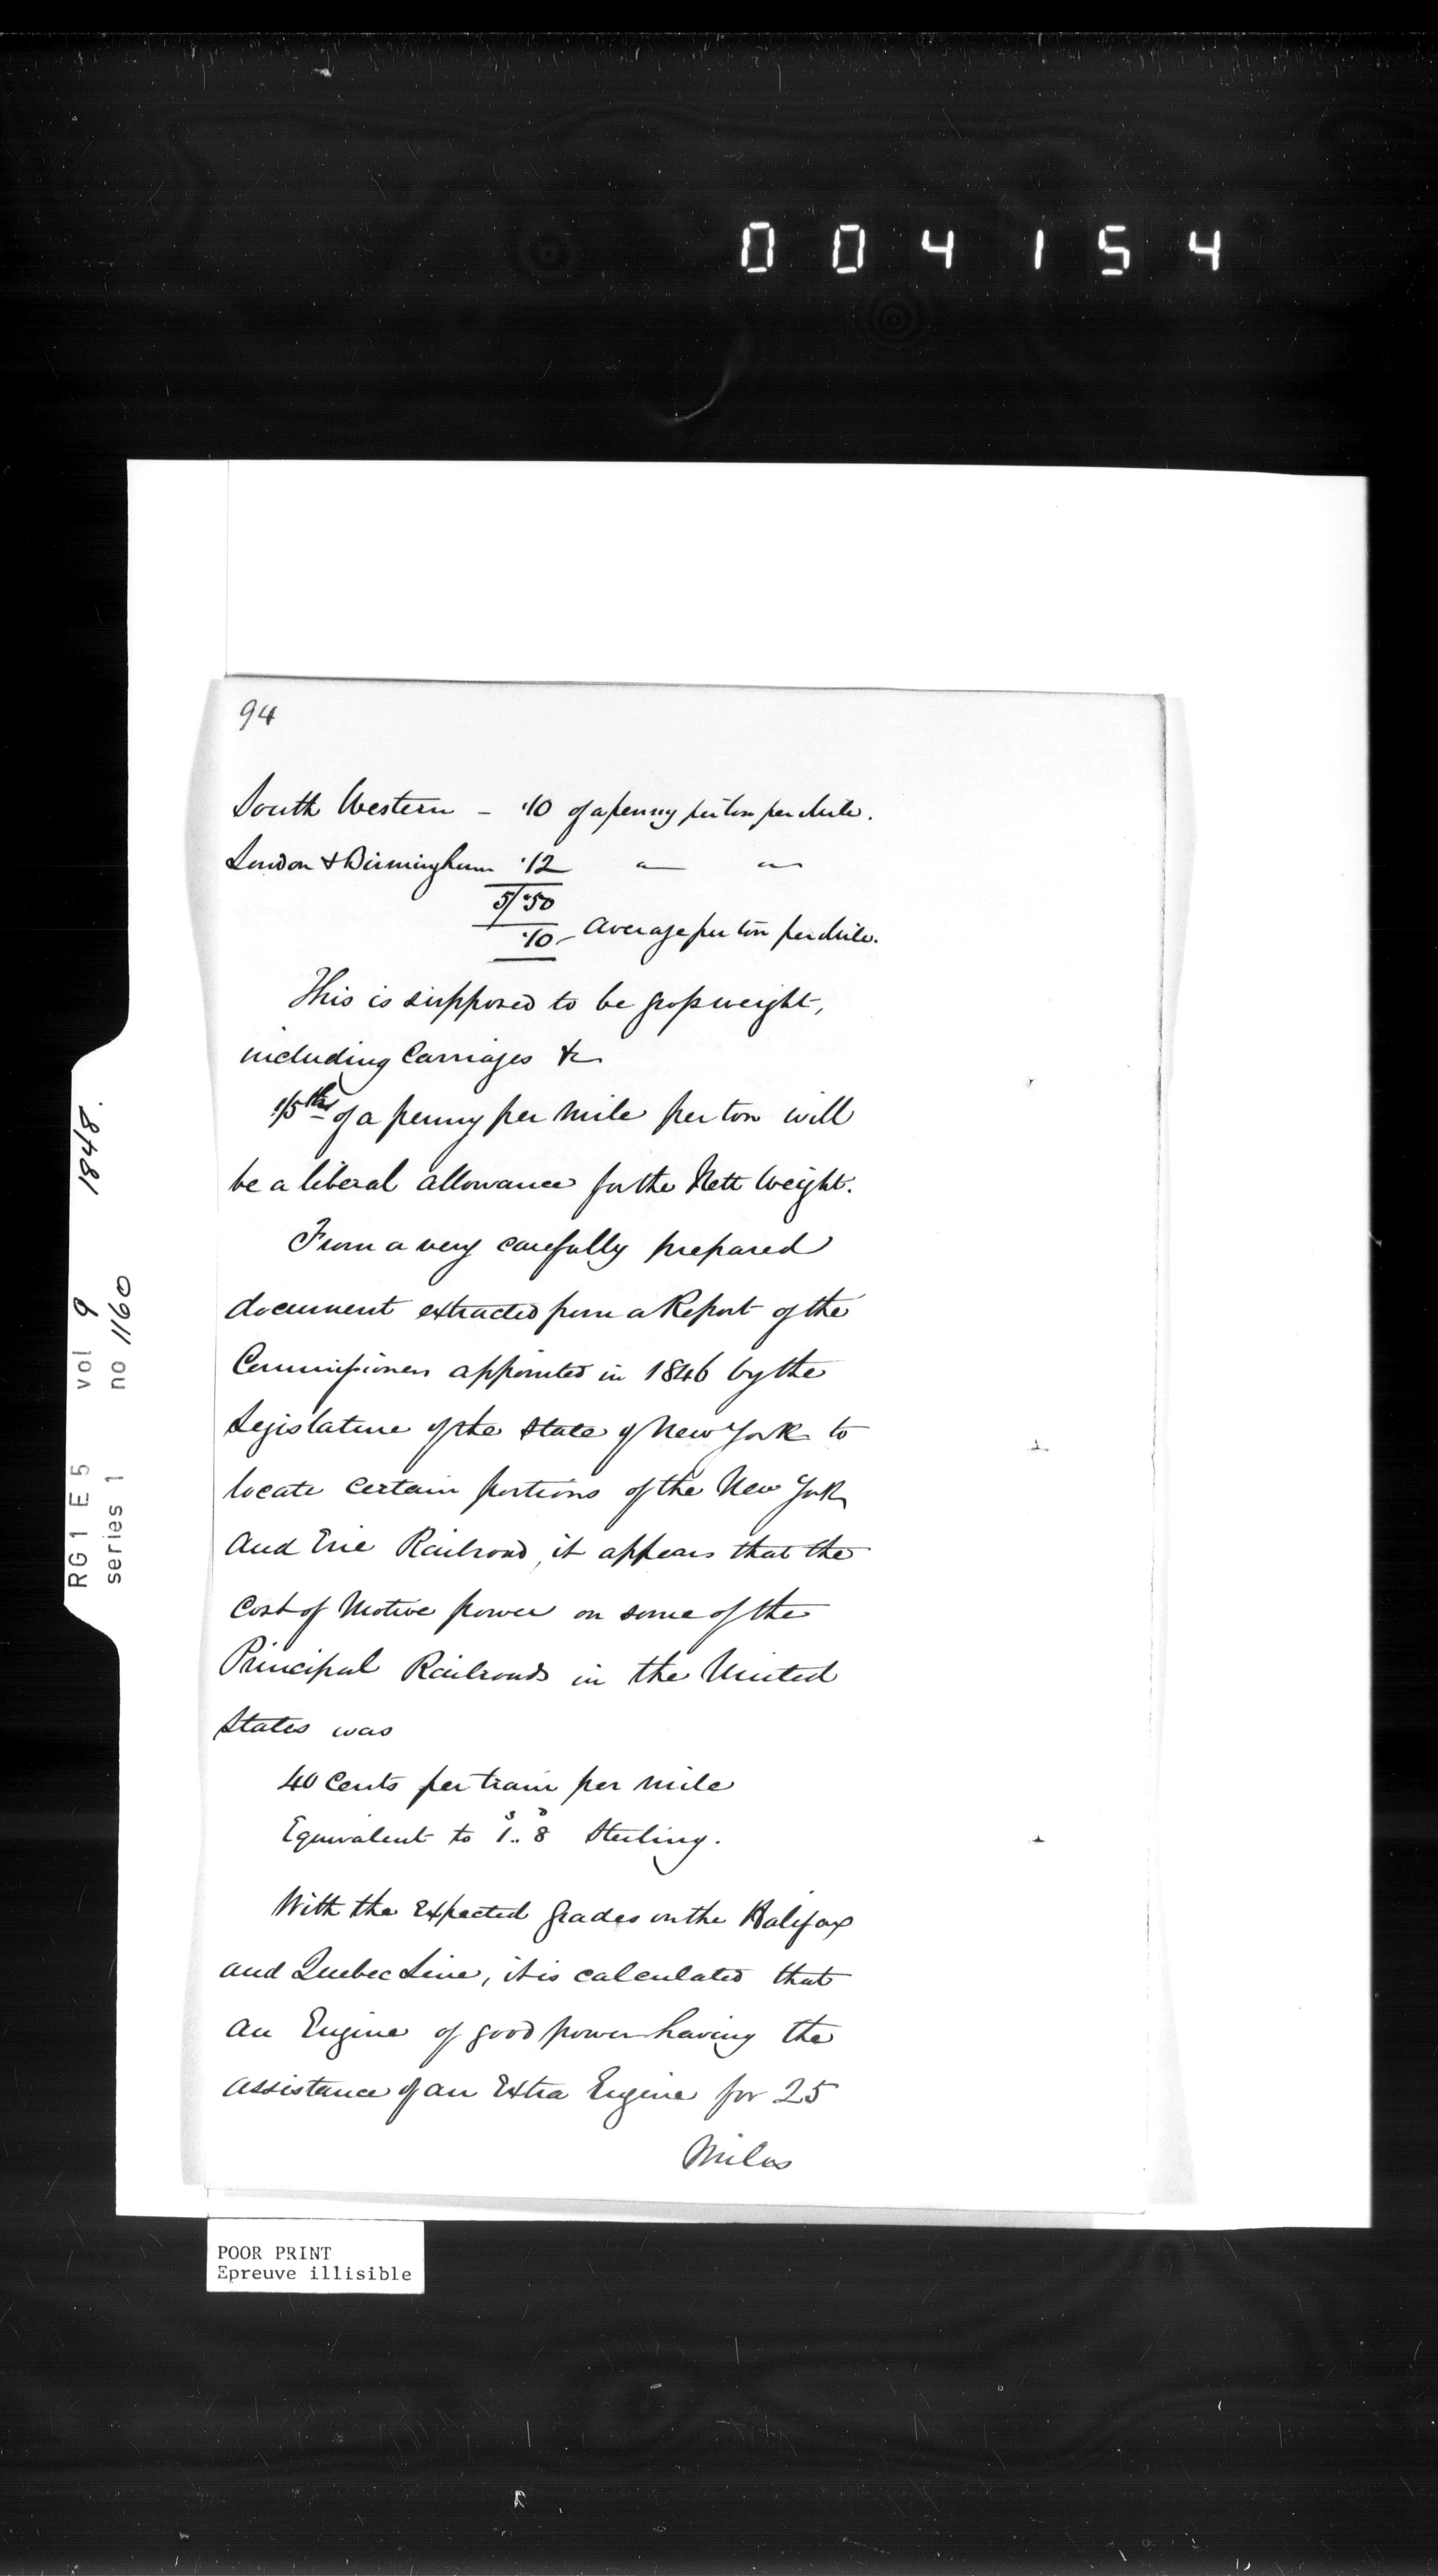 004154
94
South Western - ·10 of a penny per ton per Mile.
London & Birmingham ·12 " "
5/·50
·10 - Average per ton per Mile.
This is supposed to be gross weight,
including Carriages &c
1/5ths of a penny per Mile per ton will
be a liberal allowance for the Nett Weight.
From a very carefully prepared
document extracted from a Report of the
Commissioners appointed in 1846 by the
Legislature of the State of New York to
locate certain portions of the New York
And Erie Railroad, it appears that the
Cost of Motive power on some of the
Principal Railroads in the United
States was
40 Cents per train per mile
Equivalent to 1s.. 8d Sterling.
With the Expected Grades on the Halifax
and Quebec Line, it is calculated that
an Engine of good power having the
assistance of an Extra Engine for 25
Miles
RG 1 E 5 vol 9 1848.
series 1 no 1160
POOR PRINT
Epreuve illisible